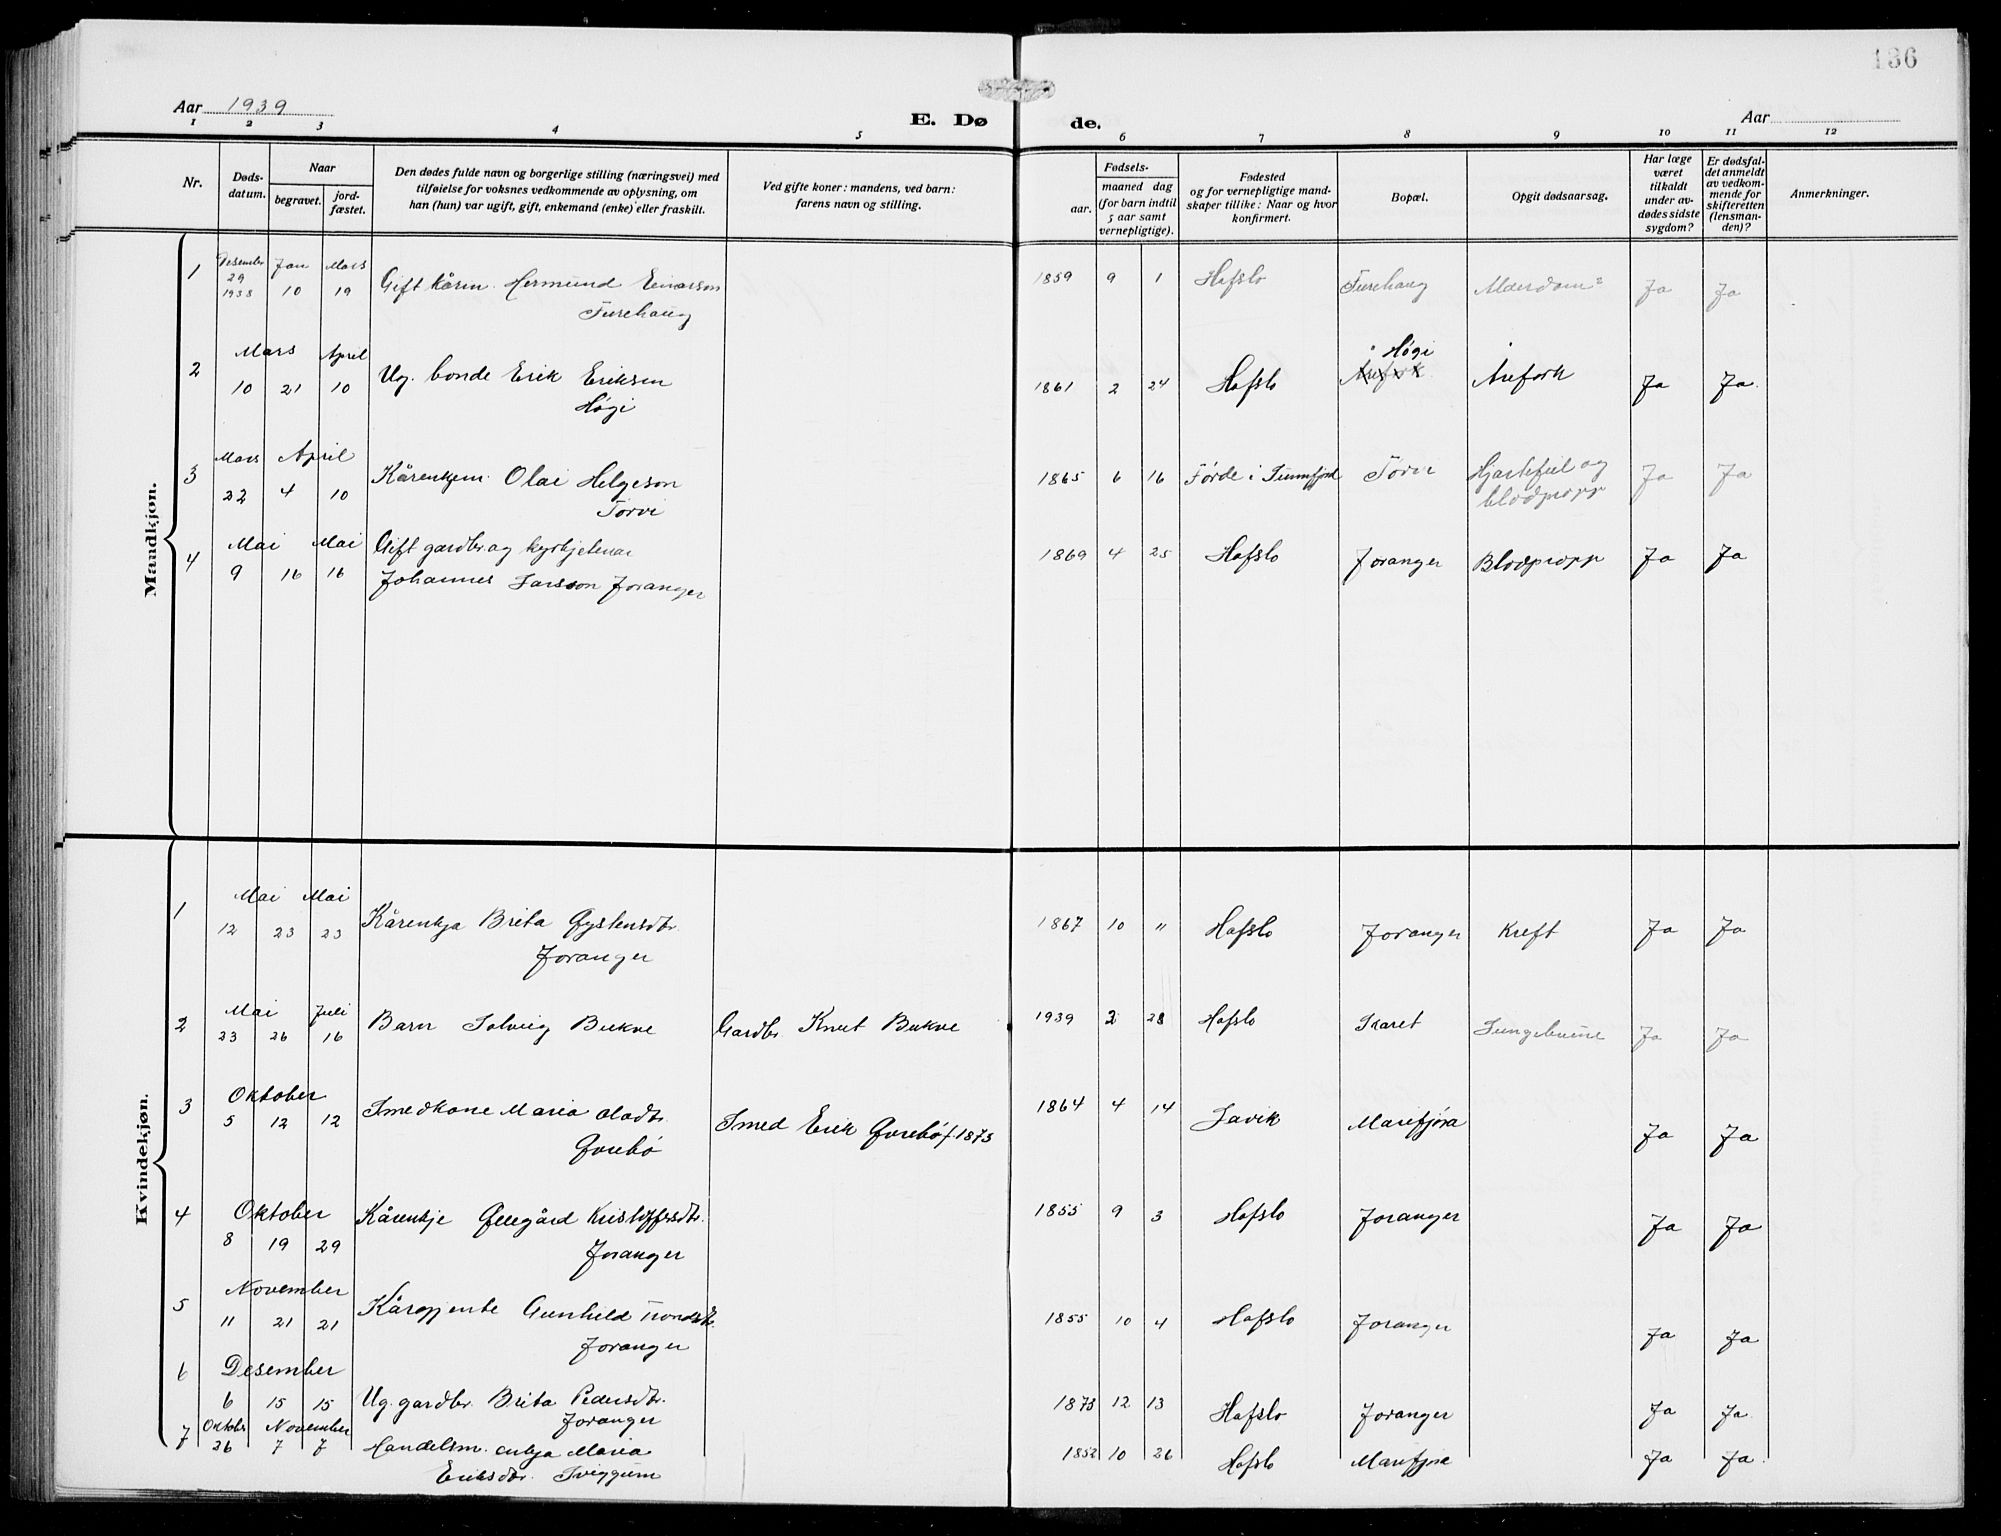 136
Aar 1939
E. Døde.
Aar
1 2 3 4 5 6 7 8 9 10 11 12
Nr.
Døds-
datum.
Naar
begravet.
jord-
fæstet.
Den dødes fulde navn og borgerlige stilling (næringsvei) med
tilføielse for voksnes vedkommende av oplysning, om
han (hun) var ugift, gift, enkemand (enke) eller fraskilt.
Ved gifte koner: mandens, ved barn:
farens navn og stilling.
Fødsels-
aar.
maaned dag
(for barn indtil
5 aar samt
vernepligtige).
Fødested
og for vernepligtige mand-
skaper tillike: Naar og hvor
konfirmert.
Bopæl.
Opgit dødsaarsag.
Har læge
været
tilkaldt
under av-
dødes sidste
sygdom?
Er dødsfal-
det anmeldt
av vedkom-
mende for
skifteretten
(lensman-
den)?
Anmerkninger.
Mandkjøn.
1 Desember 29 1938 Jan 10 Mars 19 Gift kårm. Hermund Einarson
Turehaug
1859 9 1 Hafslo Turehaug Alderdom Ja Ja
2 Mars 10 21 April 10 Ug. bonde Erik Eriksen
Høgi
1861 2 24 Hafslo Høgi Årefork Ja Ja.
3 Mars 22 April 4 10 Kårenkjem. Olai Helgeson
Torvi
1865 6 16 Førde i Sunnfjord Torvi Hjartefeil og
blodpropp Ja Ja
4 Mai 9 16 Mai 16 Gift gardbr. og kyrkjetenar
Johannes Larsson Joranger
1869 4 25 Hafslo Joranger Blodpropp Ja Ja
Kvindekjøn.
1 Mai 12 23 Mai 23 Kårenkja Brita Øystensdtr.
Joranger
1867 10 " Hafslo Joranger Kreft Ja Ja
2 Mai 23 26 Juli 16 Barn Solveig Bukve Gardbr. Knut Bukve
1939 2 28 Hafslo Skaret Lungebetene Ja Ja
3 Oktober 5 12 12 Smedkone Maria Oladtr.
Øvrebø
Smed Erik Øvrebø f. 1873
1864 4 14 Lavik Marifjøra Ja Ja
4 Oktober 8 19 29 Kårenkje Øllegård Kristoffersdtr.
Joranger
1855 9 3 Hafslo Joranger Ja Ja
5 November 11 21 21 Kårgjente Gunhild Trondsdtr.
Joranger
1855 10 4 Hafslo Joranger Ja Ja
6 Desember 6 15 15 Ug. gardbr. Brita Pedersdtr.
Joranger
1873 12 13 Hafslo Joranger Ja Ja.
7 Oktober 26 November 7 7 Handelsm. enkja Maria
Eriksdtr. Sviggum
1852 10 26 Hafslo Marifjøra Ja Ja.